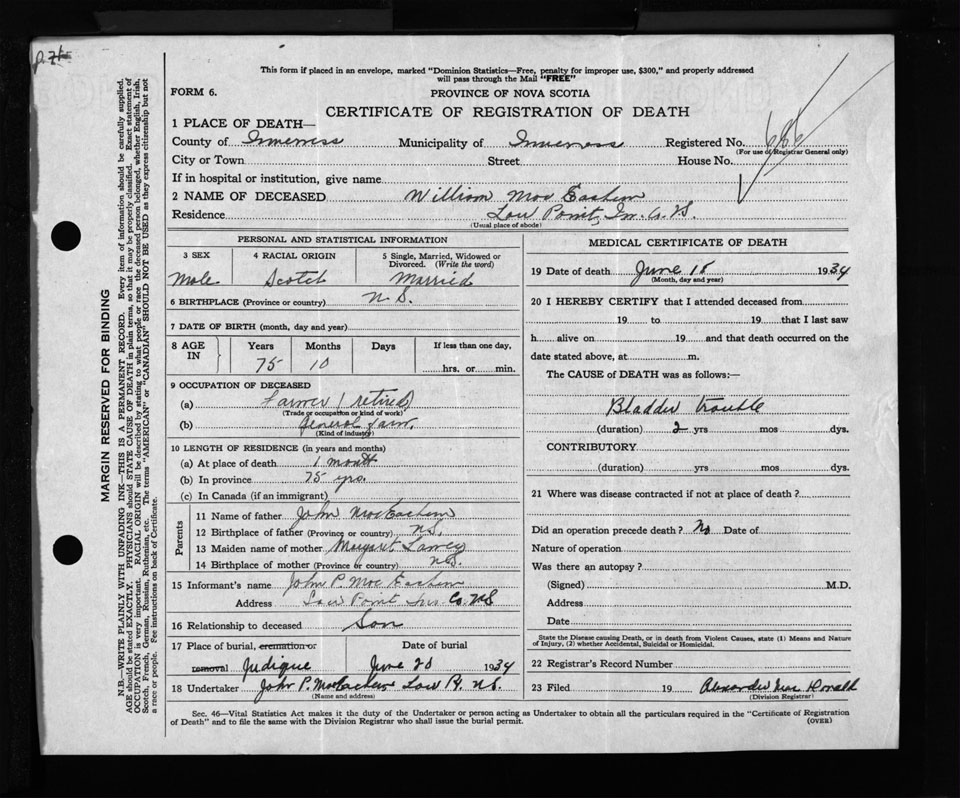 This form if placed in an envelope, marked "Dominion Statistics—Free, penalty for improper use, $300," and properly addressed
will pass through the Mail "FREE"
FORM 6.
PROVINCE OF NOVA SCOTIA
CERTIFICATE OF REGISTRATION OF DEATH
1 PLACE OF DEATH—
County of Inverness Municipality of Inverness Registered No. 686
(For use of Registrar General only)
City or Town Street House No.
If in hospital or institution, give name
2 NAME OF DECEASED William Mac Eachern
Residence Low Point, In. Co. N.S.
(Usual place of abode)
PERSONAL AND STATISTICAL INFORMATION
3 SEX 4 RACIAL ORIGIN 5 Single, Married, Widowed or
Divorced. (Write the word)
Male Scotch Married
6 BIRTHPLACE (Province or country) N.S.
7 DATE OF BIRTH (month, day and year)
8 AGE
IN
Years Months Days If less than one day,
75 10 hrs. or min.
9 OCCUPATION OF DECEASED
(a) Farmer (retired)
(Trade or occupation or kind of work)
(b) General farm
(Kind of industry)
10 LENGTH OF RESIDENCE (in years and months)
(a) At place of death 1 month
(b) In province 75 yrs.
(c) In Canada (if an immigrant)
Parents
11 Name of father John MacEachern
12 Birthplace of father (Province or country) N.S.
13 Maiden name of mother Margaret
14 Birthplace of mother (Province or country) N.S.
15 Informant's name John P. Mac Eachern
Address Low Point Inv. Co. N.S
16 Relationship to deceased Son
17 Place of burial, cremation or Date of burial
removal Judique June 20 1934
18 Undertaker John P. MacEachern Low Pt. N.S.
(Name and address)
MEDICAL CERTIFICATE OF DEATH
19 Date of death June 18 1934
(Month, day and year)
20 I HEREBY CERTIFY that I attended deceased from
19 to 19 that I last saw
h alive on 19 and that death occurred on the
date stated above, at m.
The CAUSE of DEATH was as follows:—
Bladder trouble
(duration) 2 yrs mos dys.
CONTRIBUTORY
(duration) yrs mos dys.
21 Where was disease contracted if not at place of death?
Did an operation precede death? No Date of
Nature of operation
Was there an autopsy?
(Signed) M.D.
Address
Date
State the Disease causing Death, or in death from Violent Causes, state (1) Means and Nature
of Injury, (2) whether Accidental, Suicidal or Homicidal.
22 Registrar's Record Number
23 Filed 19 Alexander Mac Donald
(Division Registrar)
Sec. 46—Vital Statistics Act makes it the duty of the Undertaker or person acting as Undertaker to obtain all the particulars required in the "Certificate of Registration
of Death" and to file the same with the Division Registrar who shall issue the burial permit. (OVER)
MARGIN RESERVED FOR BINDING
N.B.—WRITE PLAINLY WITH UNFADING INK—THIS IS A PERMANENT RECORD. Every item of information should be carefully supplied.
AGE should be stated EXACTLY. PHYSICIANS should STATE CAUSE OF DEATH in plain terms, so that it may be properly classified. Exact statement of
OCCUPATION is very important. RACIAL ORIGIN will be described by stating to what people or race the deceased person belonged, whether English, Irish,
Scotch, French, German, Russian, Ruthenian, etc. The terms "AMERICAN" or "CANADIAN" SHOULD NOT BE USED as they express citizenship but not
a race or people. Fee instructions on back of Certificate.